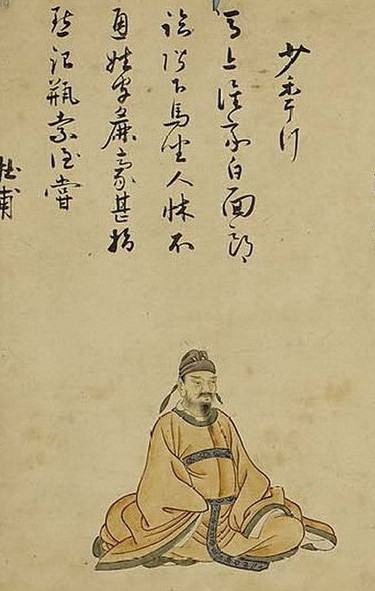 少年行
馬上誰家白面郎
臨階下馬坐人牀不
通姓字麄豪甚指
點銀瓶索酒嘗
杜甫